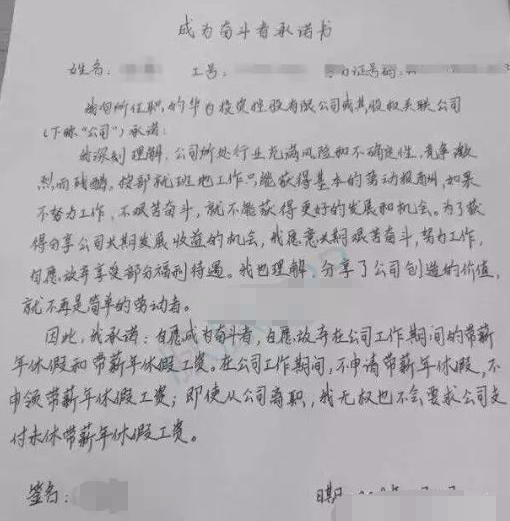 成为奋斗者承诺书
姓名: 工号: 证号码:
我向所任职的华为投资控股有限公司或其股权关联公司
(下称“公司”)承诺:
我深刻理解,公司所处行业充满风险和不确定性,竞争激
烈而残酷,按部就班地工作只能获得基本的劳动报酬,如果
不努力工作,不艰苦奋斗,就不能获得更好的发展和机会。为了获
得分享公司长期发展收益的机会,我愿意长期艰苦奋斗,努力工作,
自愿放弃享受部分福利待遇。我也理解,分享了公司创造的价值,
就不再是简单的劳动者。
因此,我承诺:自愿成为奋斗者,自愿放弃在公司工作期间的带薪
年休假和带薪年休假工资。在公司工作期间,不申请带薪年休假,不
申领带薪年休假工资;即使从公司离职,我无权也不会要求公司支
付未休带薪年休假工资。
签名: 日期